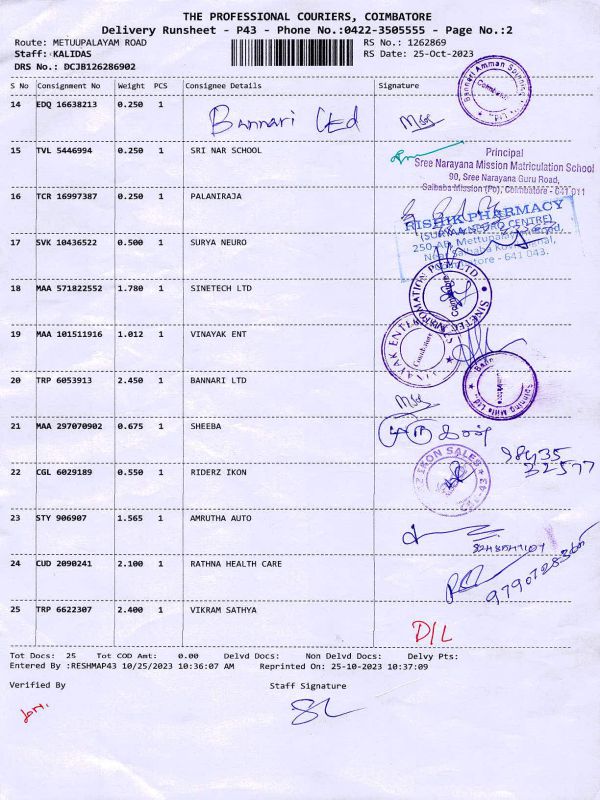 THE PROFESSIONAL COURIERS, COIMBATORE
Delivery Runsheet - P43 - Phone No.:0422-3505555 - Page No.:2
Route: METUUPALAYAM ROAD RS No.: 1262869
Staff: KALIDAS RS Date: 25-Oct-2023
DRS No.: DCJB126286902
S No Consignment No Weight PCS Consignee Details Signature
14 EDQ 16638213 0.250 1 Bannari Ltd
15 TVL 5446994 0.250 1 SRI NAR SCHOOL
Principal
Sree Narayana Mission Matriculation School
90, Sree Narayana Guru Road,
Saibaba Mission (Po), Coimbatore - 641 011
16 TCR 16997387 0.250 1 PALANIRAJA
RISHIK PHARMACY
(SURYAA NEURO CENTRE)
17 SVK 10436522 0.500 1 SURYA NEURO
18 MAA 571822552 1.780 1 SINETECH LTD
19 MAA 101511916 1.012 1 VINAYAK ENT
20 TRP 6053913 2.450 1 BANNARI LTD
21 MAA 297070902 0.675 1 SHEEBA
98435
32577
22 CGL 6029189 0.550 1 RIDERZ IKON
23 STY 906907 1.565 1 AMRUTHA AUTO
24 CUD 2090241 2.100 1 RATHNA HEALTH CARE
25 TRP 6622307 2.400 1 VIKRAM SATHYA
D/L
Tot Docs: 25 Tot COD Amt: 0.00 Delvd Docs: Non Delvd Docs: Delvy Pts:
Entered By :RESHMAP43 10/25/2023 10:36:07 AM Reprinted On: 25-10-2023 10:37:09
Verified By Staff Signature